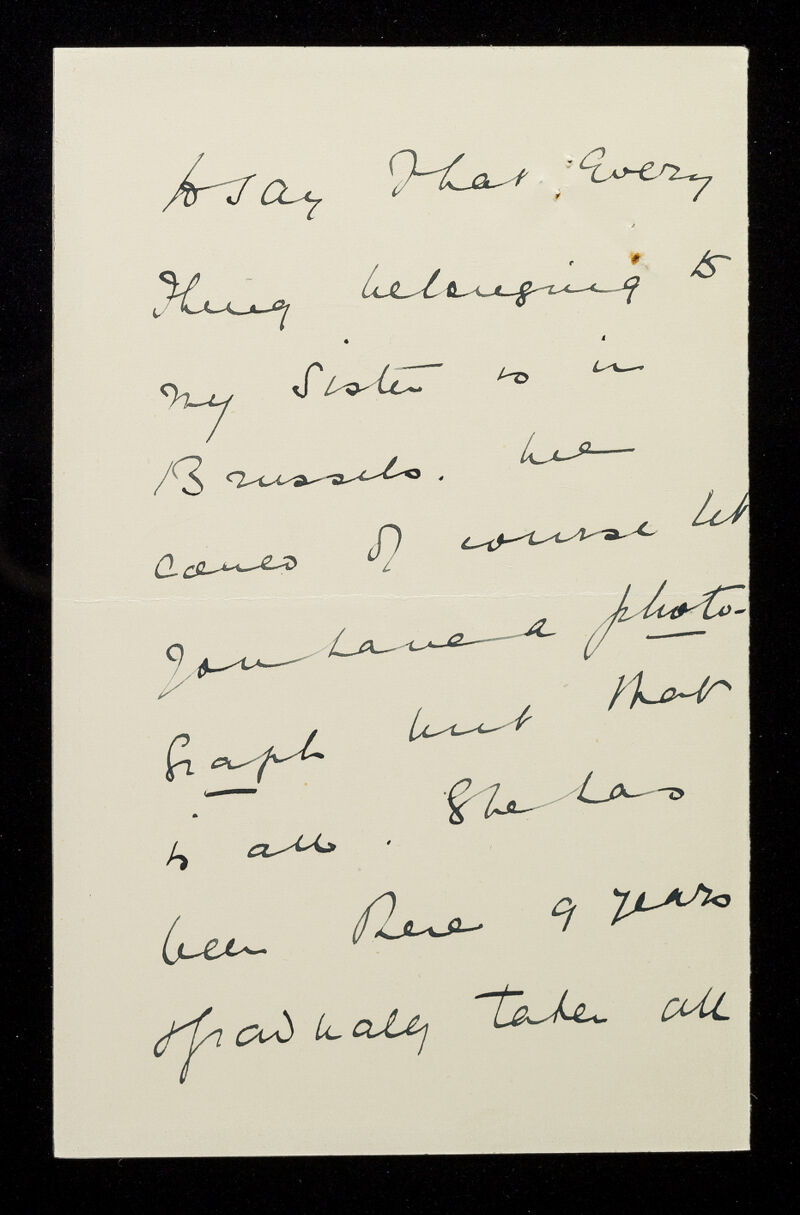 to say that every
thing belonging to
my Sister is in
Brussels. We
could of course let
you have a photo-
graph but that
is all. She has
been there 9 years
& gradually taken all